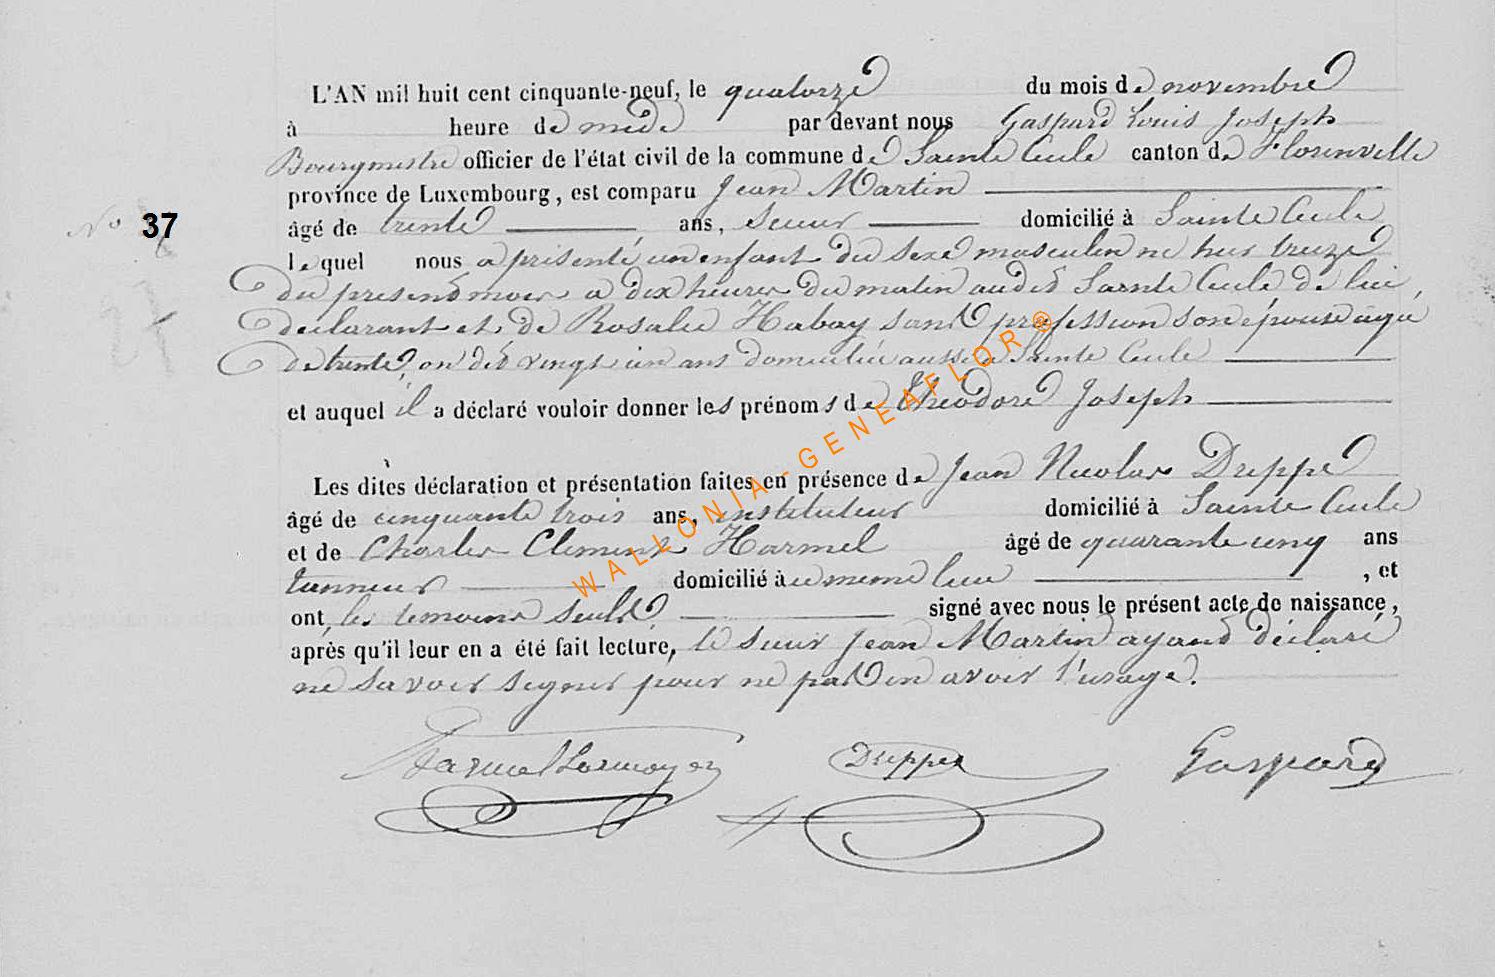 L'AN mil huit cent cinquante-neuf, le quatorze du mois de novembre
à heure de midi par devant nous Gaspard Louis Joseph
Bourgmestre officier de l'état civil de la commune de Sainte Cecile canton de Florenville
province de Luxembourg, est comparu Jean Martin
N° 37
âgé de trente ans, scieur domicilié à Sainte Cecile
lequel nous a présenté un enfant du sexe masculin né hier treize
du present mois a dix heures du matin audit Sainte Cecile de lui
declarant et de Rosalie Habay sans profession son épouse agée
de trente, on dit vingt un ans domiciliée aussi a Sainte Cecile
et auquel il a déclaré vouloir donner les prénoms de Théodore Joseph
Les dites déclaration et présentation faites en présence de Jean Nicolas Dreppe
âgé de cinquante trois ans, instituteur domicilié à Sainte Cecile
et de Charles Clement Harmel âgé de quarante cinq ans
tanneur domicilié au meme lieu , et
ont, les temoins seuls signé avec nous le présent acte de naissance,
après qu'il leur en a été fait lecture, le sieur Jean Martin ayant déclaré
ne savoir signer pour ne pas en avoir l'usage.
Dreppe Gaspard
WALLONIA-GENEAFLOR®